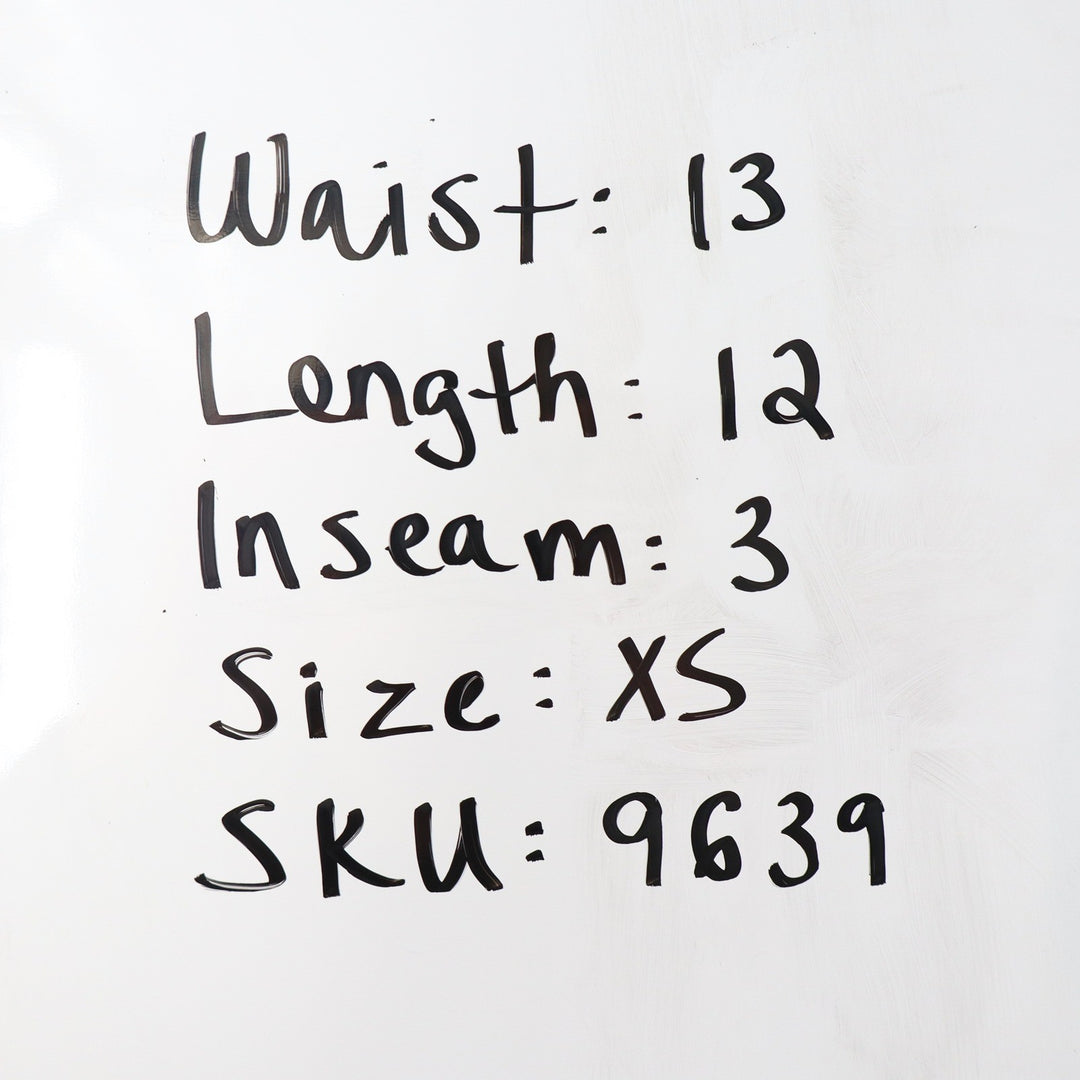 Waist: 13
Length: 12
Inseam: 3
Size: XS
SKU: 9639